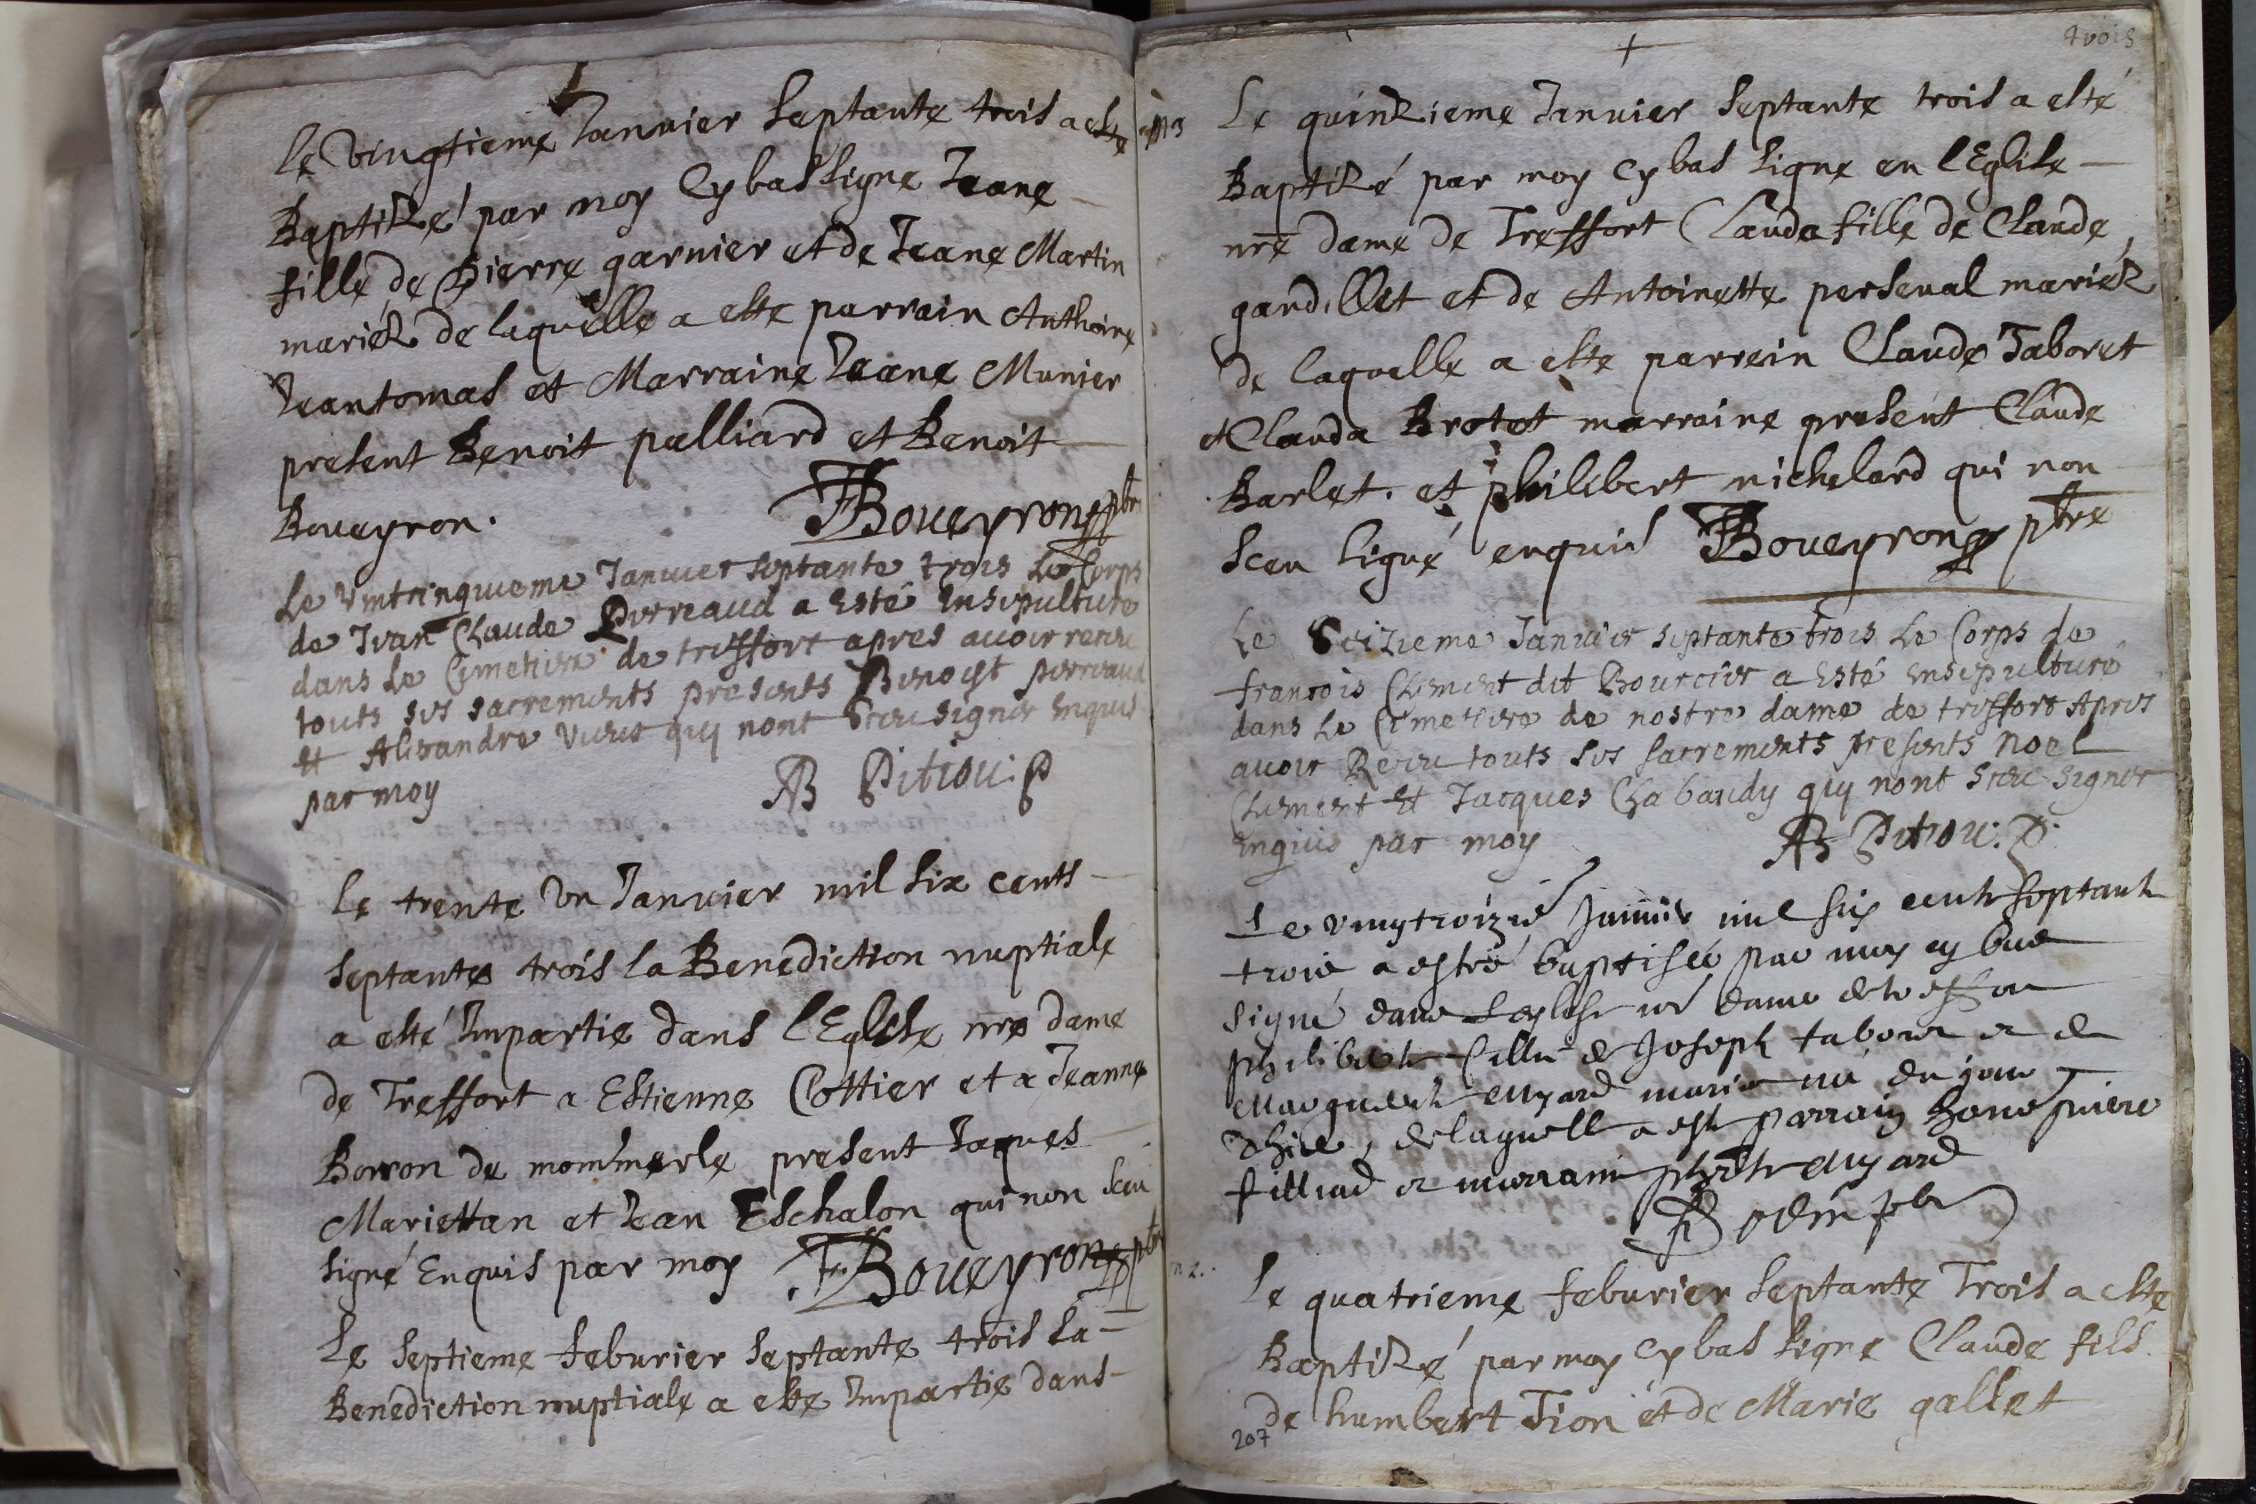 Le vingtieme Janvier septante trois a este
Baptizé par moy cy bas signe Jeane
fille de Pierre garnier et de Jeane Martin
mariéz de laquelle a este parrain Anthoine
Jeantomas et Marraine Jeane Munier
present Benoit palliard et Benoit
Boueyron.
Boueyron pbre
Le vintcinquieme Janvier septante trois Le Corps
de Jean Claude Perreaud a Esté Ensepulturé
dans Le Cimetiere de treffort apres avoir receu
touts ses sacrements presents Benoist perreaud
Et Alixandre qui nont sceu signer Enquis
par moy
Le trente un Janvier mil six cents
septante trois la Benediction nuptiale
a esté Impartie dans l'Eglise nre dame
de Treffort a Estienne Cottier et a Jeanne
Borron de mommerle present Jaques
Mariettan et Jean Eschalon qui non sceu
signé Enquis par moy Boueyron pbre
Le septieme feburier septante trois La
Benediction nuptiale a este Impartie dans
trois
Le quinzieme Janvier septante trois a esté
Baptizé par moy cy bas signe en l'Eglise
nre dame de Treffort Clauda fille de Claude
gandillet et de Antoinette perseval mariéz
de laquelle a este parrein Claude Taboret
et Clauda Brotet marraine present Claude
Barlet. et philibert michelard qui non
sceu signé enquis Boueyron pbre
Le Seizieme Janvier septante trois Le Corps de
francois Clement dit Bourcier a Esté Ensepulturé
dans Le Cimetiere de nostre dame de treffort Apres
avoir Receu touts ses sacrements presents Noel
Clement Et Jacques Chabaudy qui nont sceu signer
Enquis par moy
Le vingtroizie Janvier mil six cents septante
trois a esté baptisée par moy cy bas
signé dans Leglise nre dame de treffort
philiberte fille de Joseph taboret et de
Marguerite marie née du jour
Dhier, de laquelle a este parrain
et marraine
Le quatrieme feburier septante Trois a este
Baptizé par moy cy bas signe Claude fils
de humbert Tion et de Marie gallet
207